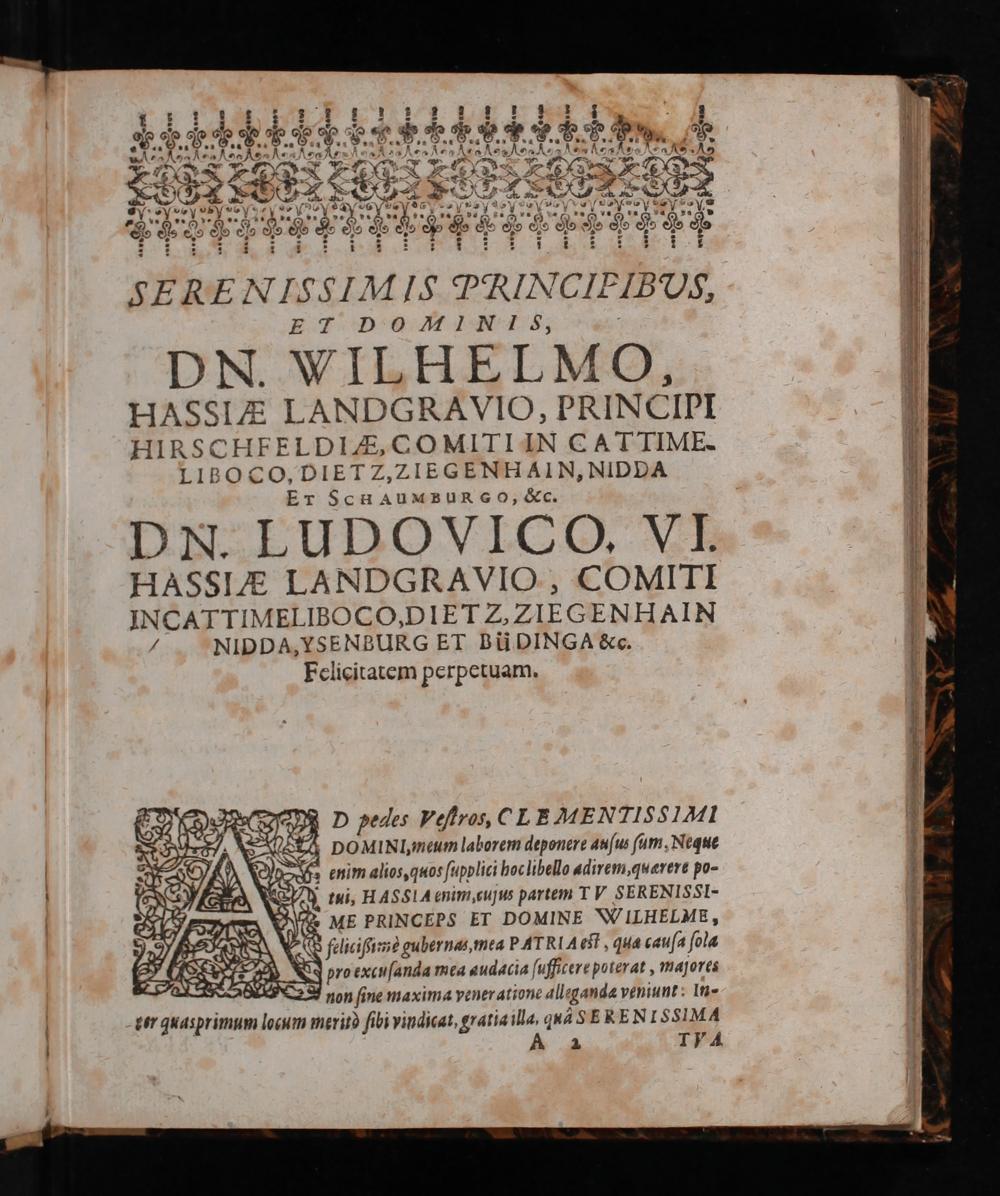 SERENISSIMIS PRINCIPIBUS,
ET DOMINIS,
DN. WILHELMO,
HASSIÆ LANDGRAVIO, PRINCIPI
HIRSCHFELDIÆ, COMITI IN CATTIME-
LIBOCO, DIETZ, ZIEGENHAIN, NIDDA
ET SCHAUMBURGO, &c.
DN. LUDOVICO. VI.
HASSIÆ LANDGRAVIO, COMITI
INCATTIMELIBOCO, DIETZ, ZIEGENHAIN
NIDDA, YSENBURG ET BüDINGA &c.
Felicitatem perpetuam.
AD pedes Veſtros, CLEMENTISSIMI
DOMINI, meum laborem deponere auſus ſum, Neque
enim alios, quos ſupplici hoc libello adirem, quærere po-
tui, HASSIA enim, cujus partem TV SERENISSI-
ME PRINCEPS ET DOMINE WILHELME,
feliciſſimè gubernas, mea PATRIA eſt, qua cauſa ſola
pro excuſanda mea audacia ſufficere poterat, majores
non ſine maxima veneratione alleganda veniunt: In-
ter quas primum locum meritò ſibi vindicat, gratia illa, quâ SERENISSIMA
A 2 TVA